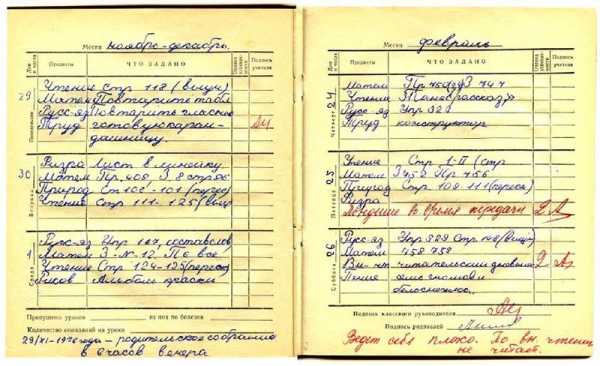 Месяц ноябрь-декабрь.
Предметы ЧТО ЗАДАНО
Подпись учителя
29 Понедельник
Чтение Стр 118 (выуч)
Матем Повторите табл
Русс-яз Повторить гласные
Труд готовую каран-
дашницу.
30 Вторник
Физра Лист в линейку
Матем Пр. 408 З. 8 стр 86
Природ Ст 101-101 (перес)
Чтение Стр 111-125 (выуч
1
Русс-яз Упр 167, составслов
Матем З-N-12, П6 все
Чтение Стр 124-125 (перес)
Рисов Альбом краски
Пропущено уроков из них по болезни
Количество опозданий на уроки
29/XI-1976 года - родительское собрание
в 6 часов вечера
Месяц февраль
Предметы ЧТО ЗАДАНО
Подпись учителя
24 Четверг
Матем Пр 750 З 747
Чтение
Русс яз Упр 325
Труд конструктор
25
Чтение Стр (стр
Матем З 752 Пр 756
Природ Стр 108-111 (перес
Физра
Поведение во время передачи 2
26 Суббота
Русс-яз Упр 329 Стр (выуч)
Матем 758 758
Вн-чт читательский дневник 2
Пение
белоснежно..
Подпись классного руководителя
Подпись родителей
Ведет себя плохо. По вн. чтению
не читает.